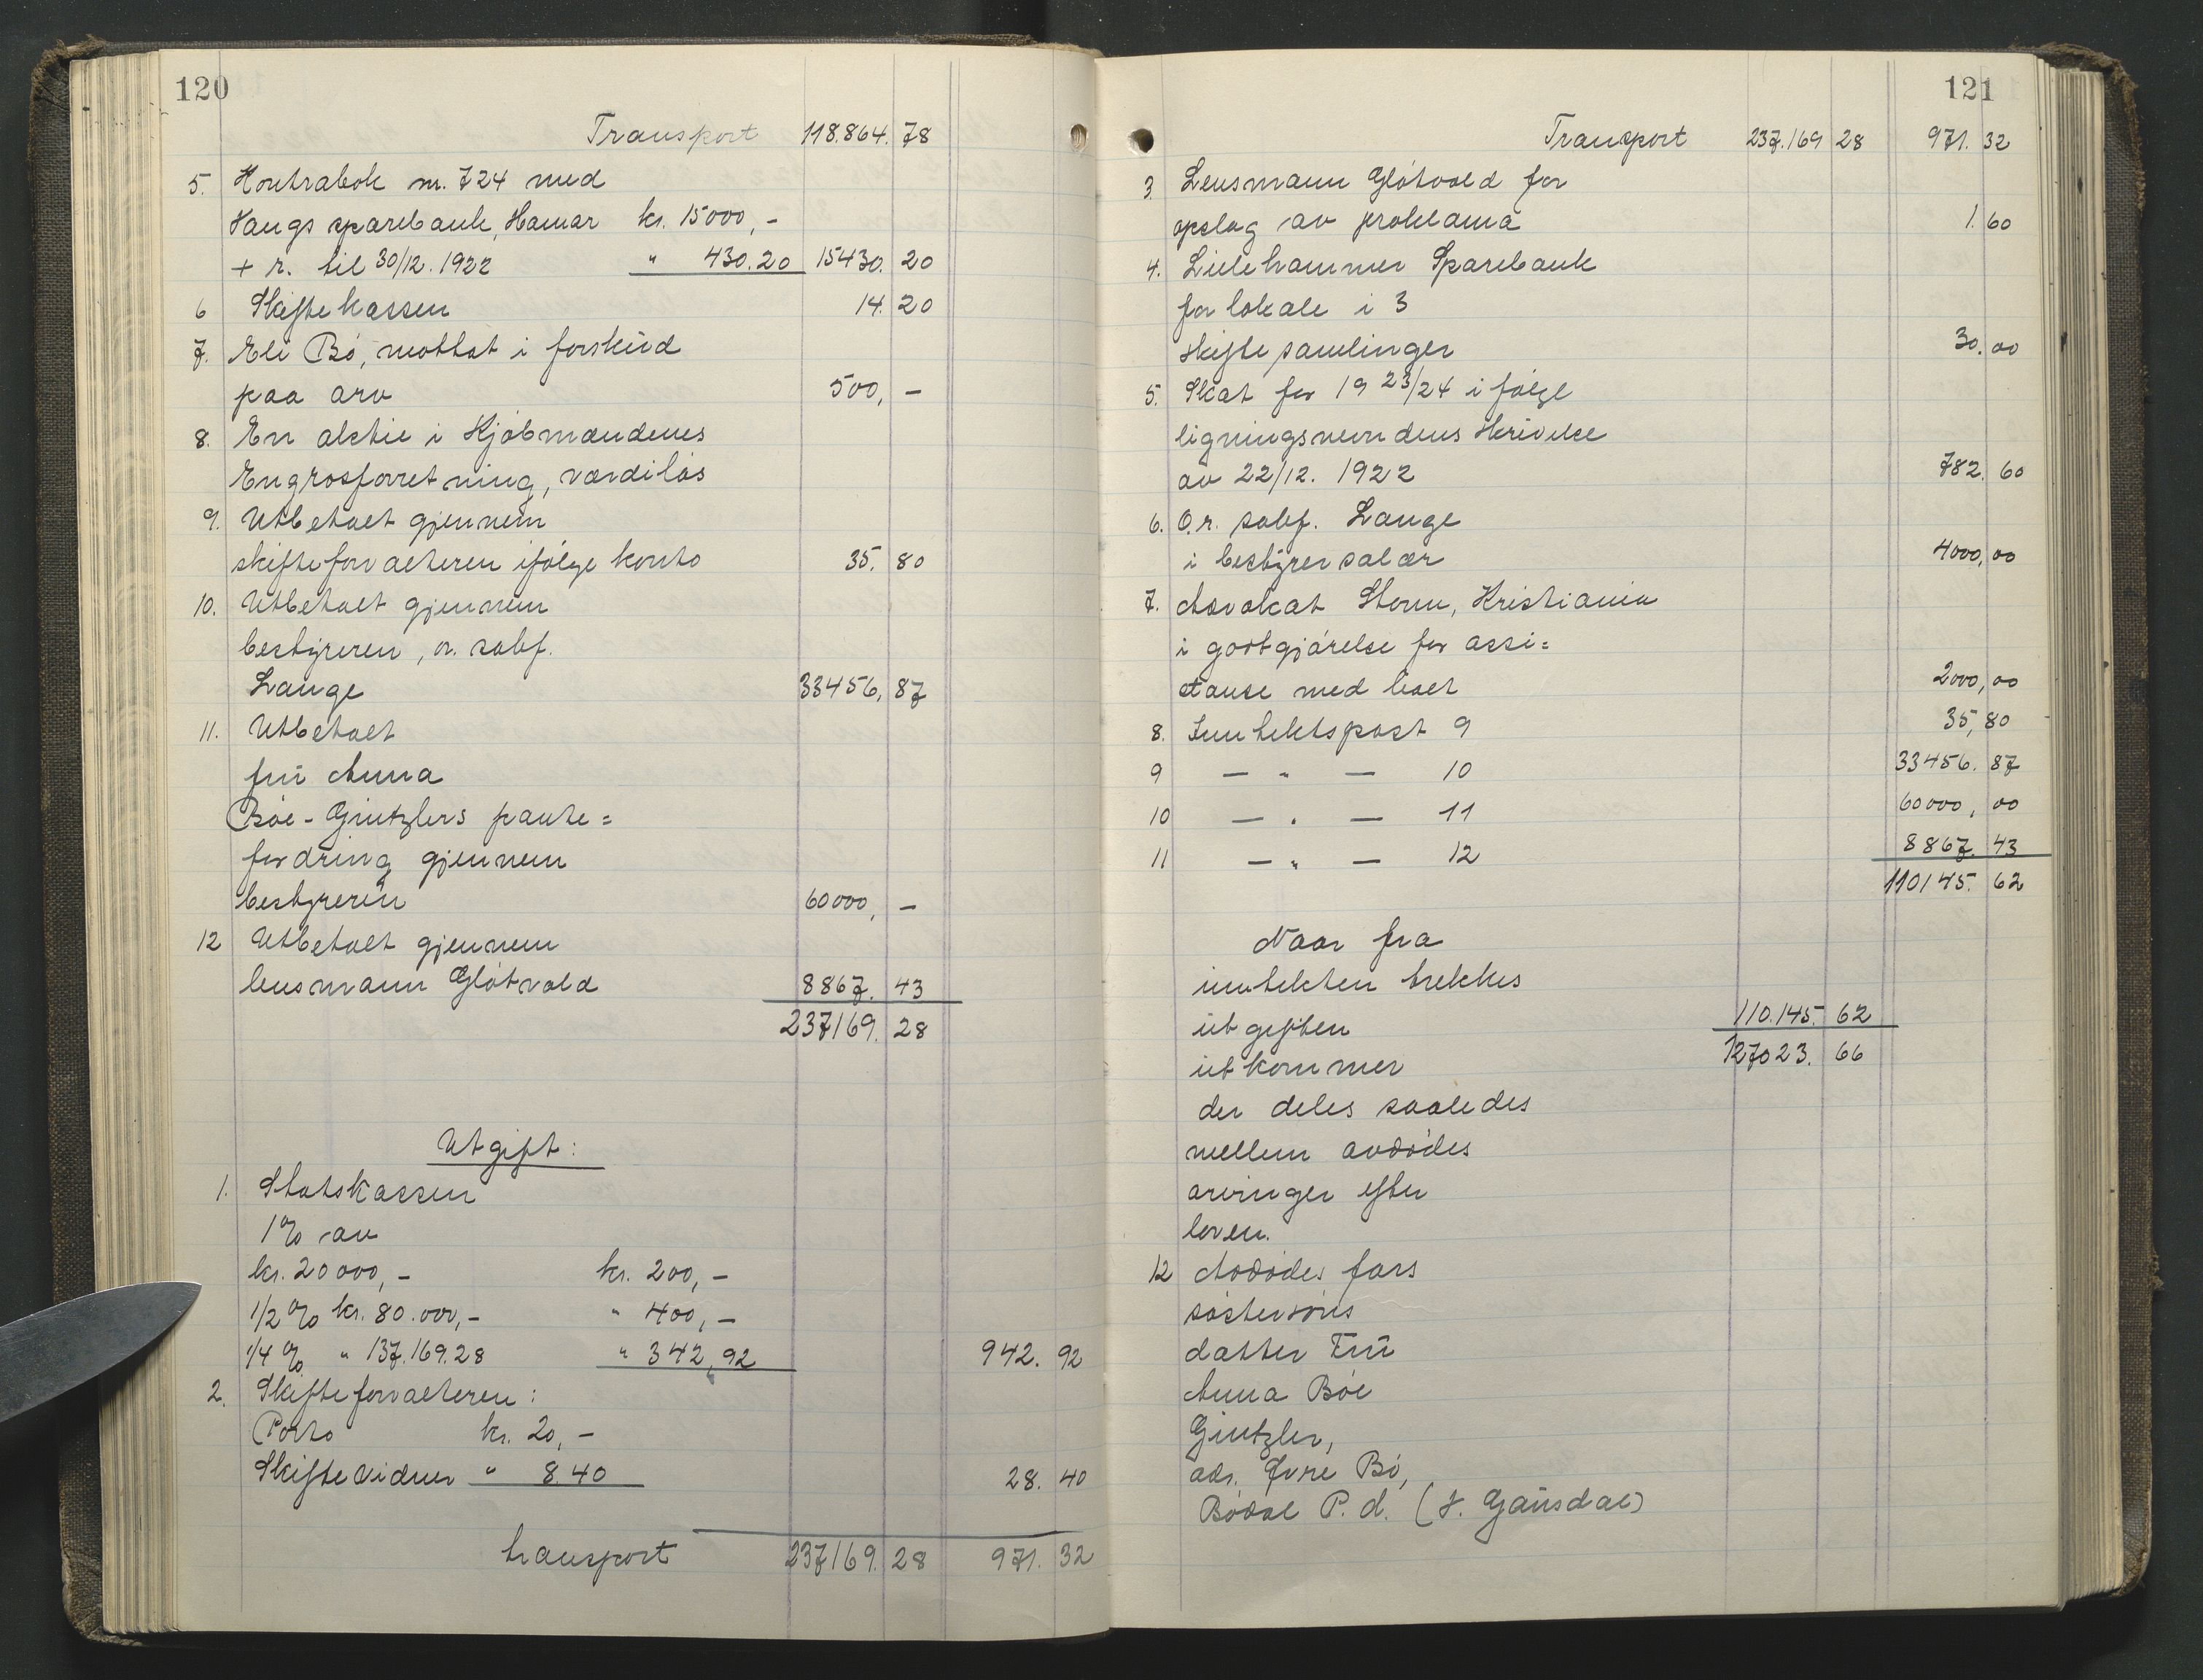 120
Transport 118.864. 78
5. Kontrabok nr. 724 med
Vangs sparebank, Hamar kr. 15000,-
+ r. til 30/12. 1922 " 430.20 15430. 20
6 Skiftekassen 14. 20
7. Eli Bö, mottat i forskud
paa arv 500, -
8. En aktie i Kjöbmændenes
Engrosforretning, værdilös
9. Utbetalt gjennem
skifteforvalteren ifölge konto 35. 80
10. Utbetalt gjennem
bestyreren, o. r. sakf.
Lange 33456, 87
11. Utbetalt
frü Anna
Böe-Gintzlers pante=
fordring gjennem
bestyreren 60000, -
12 Utbetalt gjennem
lensmann Glötvold 8867. 43
237169. 28
Utgift:
1. Statskassen
1% av
kr. 20000,- kr. 200,-
1/2% kr. 80.000,- " 400,-
1/4% " 137.169.28 " 342,92 942. 92
2. Skifteforvalteren:
Porto kr. 20,-
Skiftevidner " 8.40 28. 40
transport 237169. 28 971. 32
121
Transport 237.169 28 971. 32
3. Lensmann Glötvold for
opslag av proklama 1. 60
4. Lillehammer Sparebank
for lokale i 3
skiftesamlinger 30. 00
5. Skat for 19 23/24 i fölge
ligningsnevndens skrivelse
av 22/12. 1922 782. 60
6. O.r. sakf. Lange
i bestyrersalær 4000,00
7. Advokat Storm, Kristiania
i godtgjörelse for assi=
stanse med boet 2000,00
8. Inntektspost 9 35,80
9 — " — 10 33456. 87
10 — " — 11 60000, 00
11 — " — 12 8867. 43
110145. 62
Naar fra
inntekten trekkes
ütgiften 110.145. 62
ütkommer 127023. 66
der deles saaledes
mellem avdödes
arvinger efter
loven.
12 Avdödes fars
söstersöns
datter Frü
Anna Böe
Gintzler,
adr. Övre Bö,
Bödal P.d. (V. Gaüsdal)